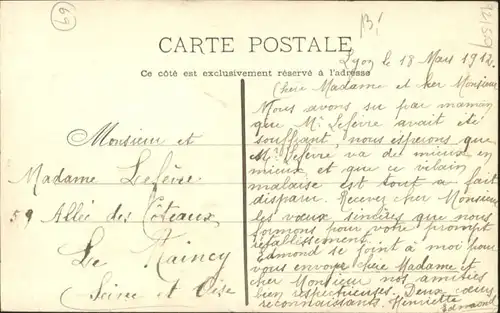 69
B!
12/509
CARTE POSTALE
Ce côté est exclusivement réservé à l'adresse
Lyon le 18 Mars 1912.
Chère Madame et cher Monsieur
Nous avons su par maman
que Mr Lefèvre avait été
souffrant, nous esperons que
Mr Lefèvre va de mieux en
mieux et que ce vilain
malaise est tout a fait
disparu. Recevez cher Monsieur
les vœux sincères que nous
formons pour votre prompt
rétablissement.
Edmond se joint à moi pour
vous envoyer chère Madame et
cher Monsieur nos amitiés
bien respectueuses. Deux cœurs
reconnaissants. Henriette
Edmond
Monsieur et
Madame Lefèvre
59 Allée des Coteaux
Le Raincy
Seine et Oise